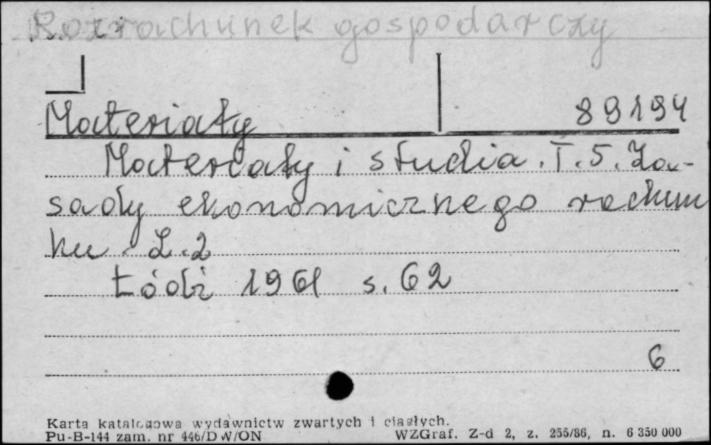 Rozrachunek gospodarczy
Materiały 89194
Materiały i studia. T. 5. Za-
sady ekonomicznego rachun
ku Z. 2
Łódź 1961 s. 62
6
Karta katalogowa wydawnictw zwartych i ciągłych.
Pu-B-144 zam. nr 446/DW/ON WZGraf. Z-d 2, z. 255/86, n. 6 350 000